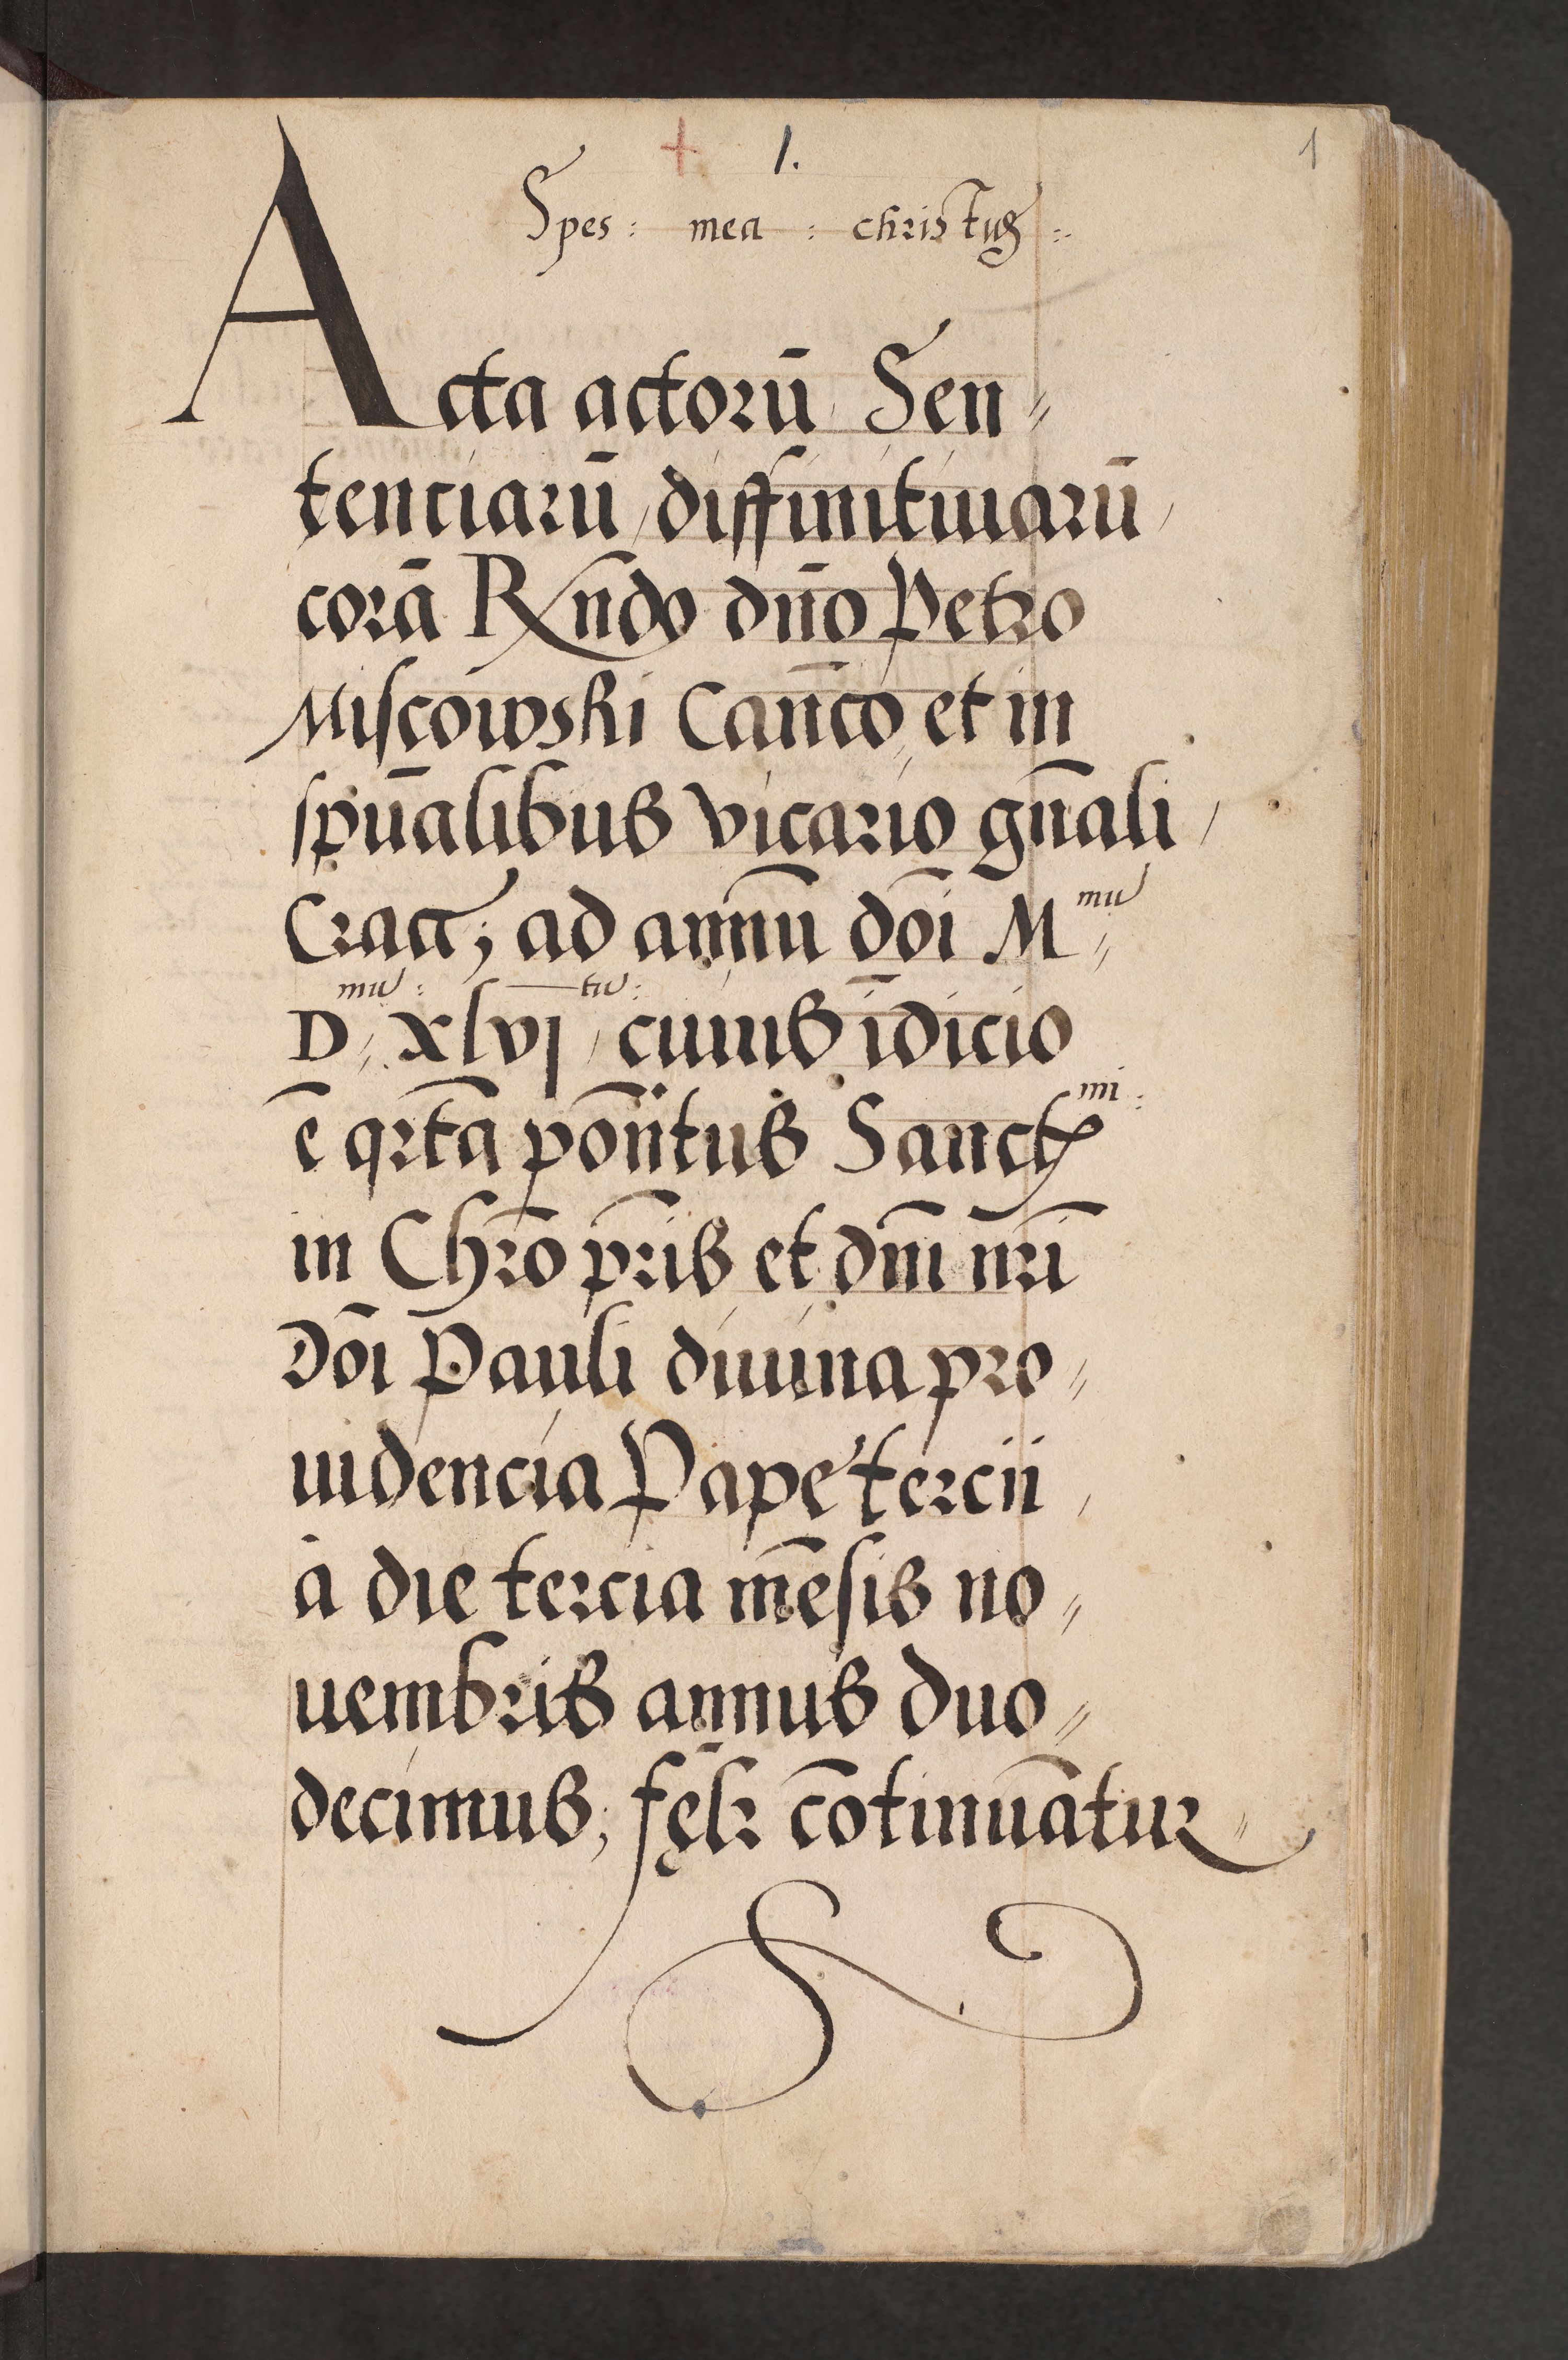 + 1. 1
Spes : mea : christus :
Acta actorū Sen
tenciarū diffinitiuarū
corā Rn̄do dn̄o Petro
Miscowski Can̄co et in
spūalibus vicario gn̄ali
Cracē ad annū dōi M mū
D mū xlvj tū : cuius īdicio
ē qrta pōntus Sanctmi :
in Chrō pr̄is et dn̄i nr̄i
Dōi Pauli diuina pro
uidencia Pape tercii
a die tercia mēsis no
uembris annus duo
decimus, continuātur